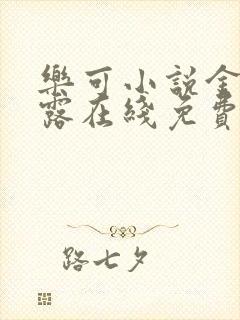 樂可小說金
露在綫免費
路七夕